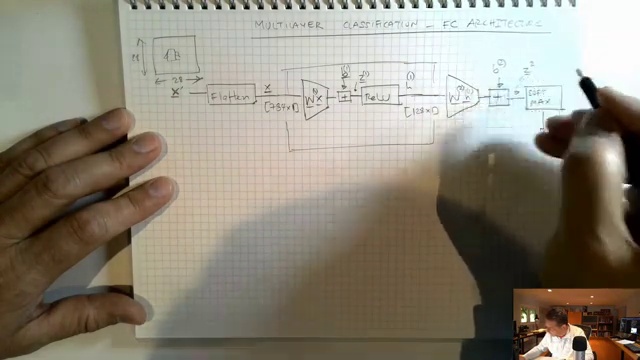 MULTILAYER CLASSIFICATION - FC ARCHITECTURE
28
28
x'
Flatten
x
[784x1]
W(1) x
b(1)
+
z(1)
ReLU
h(1)
[128x1]
W(2) h(1)
b(2)
+
z2
SOFT
MAX